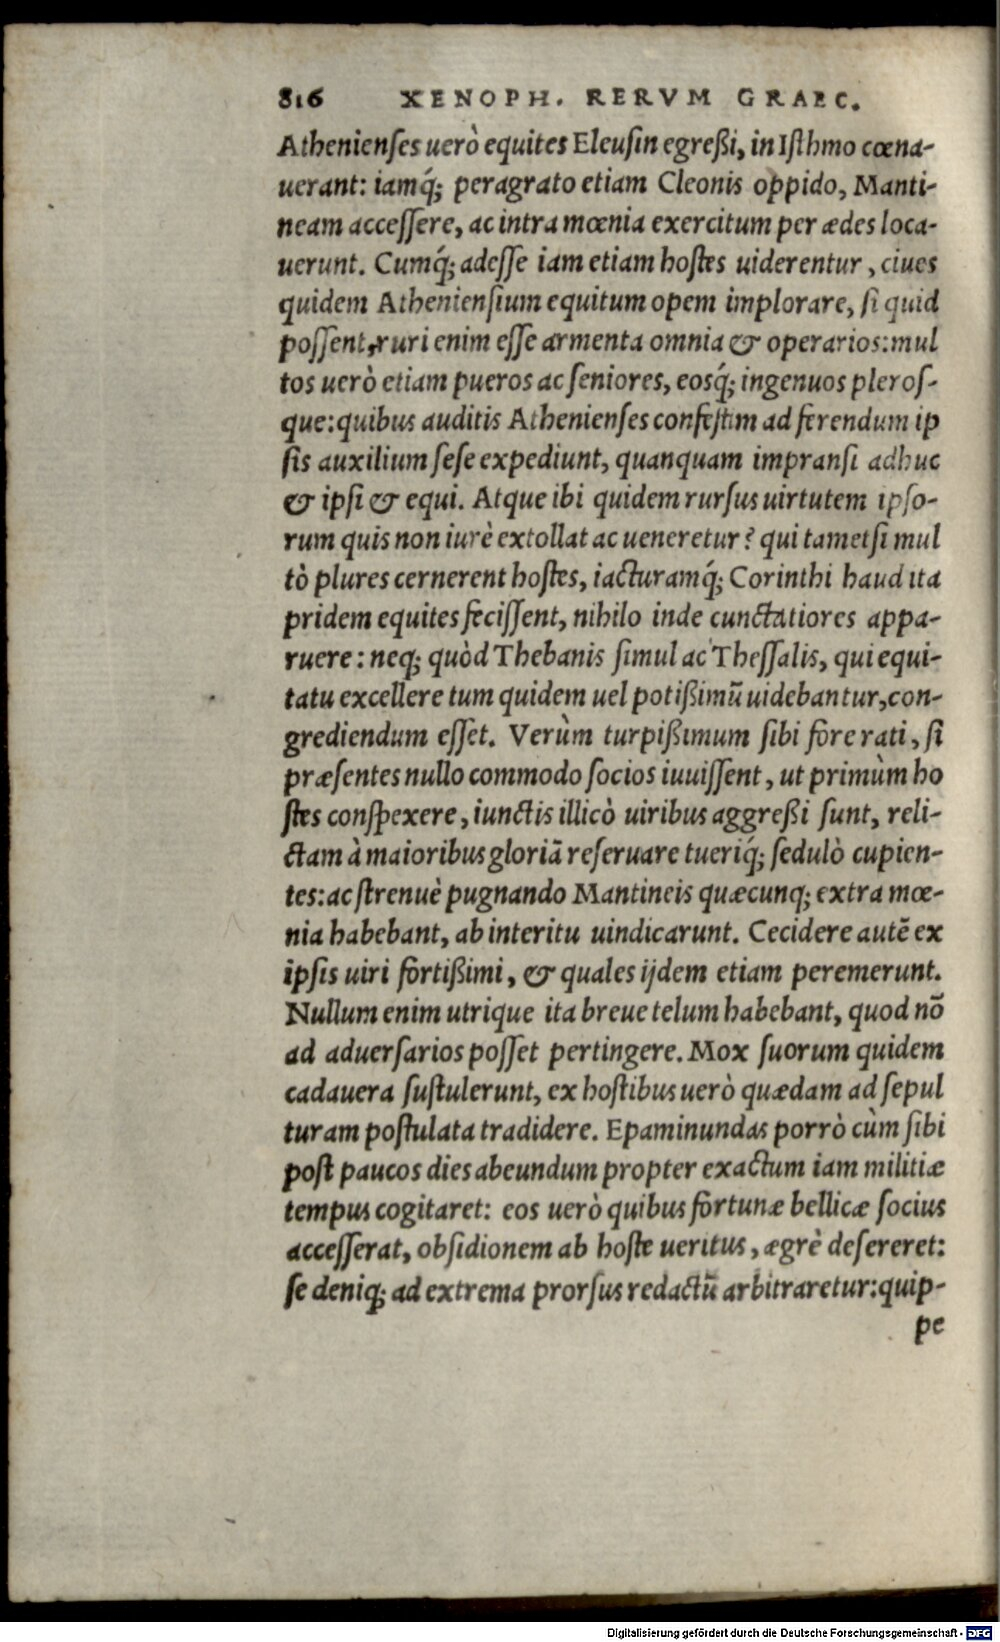 816 XENOPH. RERVM GRAEC.
Athenienses uerò equites Eleusin egreßi, in Isthmo cœna-
uerant: iamq́; peragrato etiam Cleonis oppido, Manti-
neam accessere, ac intra mœnia exercitum per ædes loca-
uerunt. Cumq́; adesse iam etiam hostes uiderentur, ciues
quidem Atheniensium equitum opem implorare, si quid
possent, ruri enim esse armenta omnia & operarios: mul
tos uerò etiam pueros ac seniores, eosq́; ingenuos pleros-
que: quibus auditis Athenienses confestim ad ferendum ip
sis auxilium sese expediunt, quanquam impransi adhuc
& ipsi & equi. Atque ibi quidem rursus uirtutem ipso-
rum quis non iurè extollat ac ueneretur? qui tametsi mul
tò plures cernerent hostes, iacturamq́; Corinthi haud ita
pridem equites fecissent, nihilo inde cunctatiores appa-
ruere: neq; quòd Thebanis simul ac Thessalis, qui equi-
tatu excellere tum quidem uel potißimũ uidebantur, con-
grediendum esset. Verùm turpißimum sibi fore rati, si
præsentes nullo commodo socios iuuissent, ut primùm ho
stes conspexere, iunctis illicò uiribus aggreßi sunt, reli-
ctam à maioribus gloriã reseruare tueriq́; sedulò cupien-
tes: ac strenuè pugnando Mantineis quæcunq; extra mœ-
nia habebant, ab interitu uindicarunt. Cecidere autẽ ex
ipsis uiri fortißimi, & quales ijdem etiam peremerunt.
Nullum enim utrique ita breue telum habebant, quod nõ
ad aduersarios posset pertingere. Mox suorum quidem
cadauera sustulerunt, ex hostibus uerò quædam ad sepul
turam postulata tradidere. Epaminundas porrò cùm sibi
post paucos dies abeundum propter exactum iam militiæ
tempus cogitaret: eos uerò quibus fortunæ bellicæ socius
accesserat, obsidionem ab hoste ueritus, ægrè desereret:
se deniq; ad extrema prorsus redactũ arbitraretur: quip-
pe
Digitalisierung gefördert durch die Deutsche Forschungsgemeinschaft - DFG